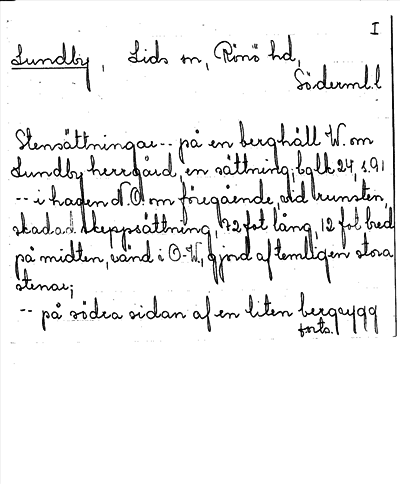 I
Lundby, Lids sn, Rönö hd,
Söderml. l
Stensättningar -- på en berghäll W. om
Lundby herrgård, en sättning; bglk 24, s.91
-- i hagen N.O. om föregående, vid runsten,
skadad skeppsättning, 72 fot lång, 12 fot bred
på midten, vänd i O-W, gjord af temligen stora
stenar;
-- på södra sidan af en liten bergrygg
forts.